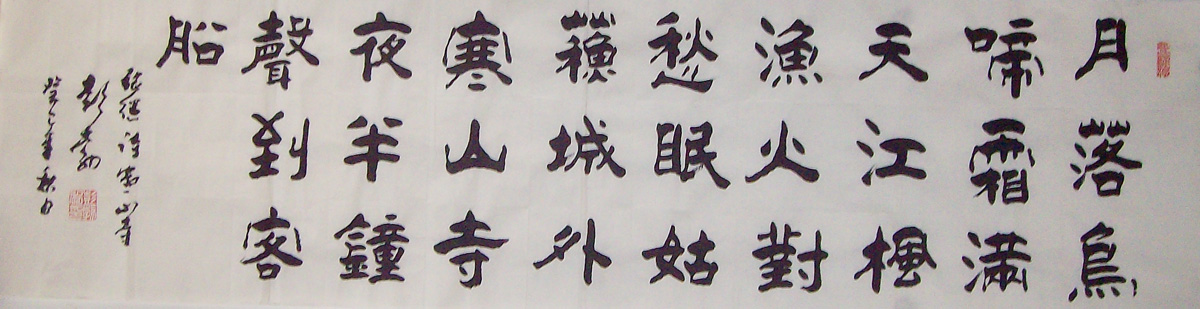 月落烏
啼霜滿
天江楓
漁火對
愁眠姑
蘓城外
寒山寺
夜半鐘
聲到客
船
張繼詩寒山寺
彭
癸巳年秋月